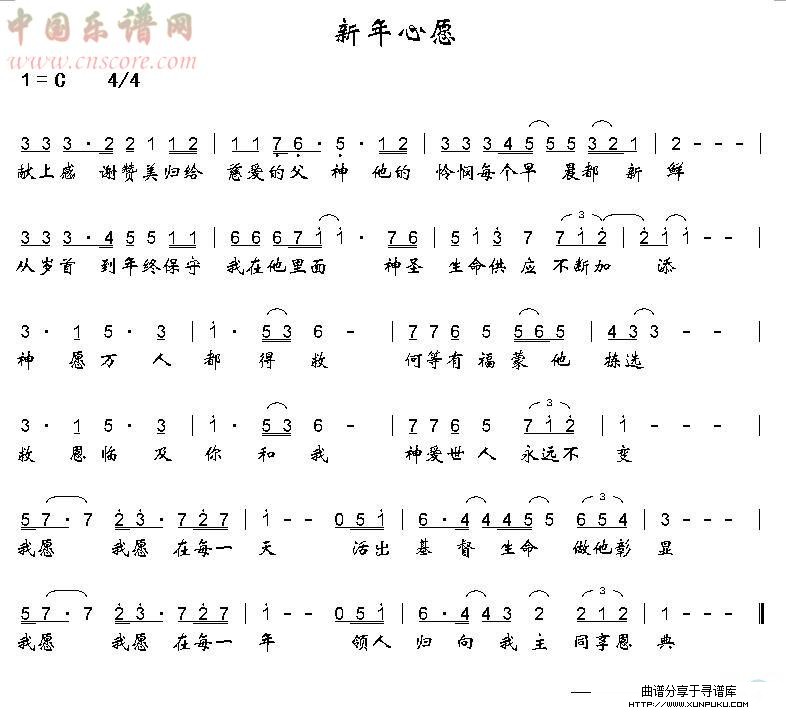 中国乐谱网
www.cnscore.com
新年心愿
1=C 4/4
3 3 3 · 2 2 1 1 2 | 1 1 7 6 · 5 · 1 2 | 3 3 3 4 5 5 5 3 2 1 | 2 - - - |
献上感 谢赞美归给 慈爱的父 神 他的 怜悯每个早 晨都 新 鲜
3 3 3 · 4 5 5 1 1 | 6 6 6 7 1 1 · 7 6 | 5 1 3 7 7 1 2 | 2 1 1 - - |
从岁首 到年终保守 我在他里面 神圣 生命供 应 不断加 添
3 · 1 5 · 3 | 1 · 5 3 6 - | 7 7 6 5 5 6 5 | 4 3 3 - - |
神 愿 万 人 都 得 救 何等有 福 蒙 他 拣选
3 · 1 5 · 3 | 1 · 5 3 6 - | 7 7 6 5 7 1 2 | 1 - - - |
救 恩 临 及 你 和 我 神爱世 人 永远不 变
5 7 · 7 2 3 · 7 2 7 | 1 - - 0 5 1 | 6 · 4 4 4 5 5 6 5 4 | 3 - - - |
我愿 我愿 在每一 天 活出 基 督 生命 做他彰 显
5 7 · 7 2 3 · 7 2 7 | 1 - - 0 5 1 | 6 · 4 4 3 2 2 1 2 | 1 - - -
我愿 我愿 在每一 年 领人 归 向 我 主 同享恩 典
曲谱分享于寻谱库
HTTP://WWW.XUNPUKU.COM